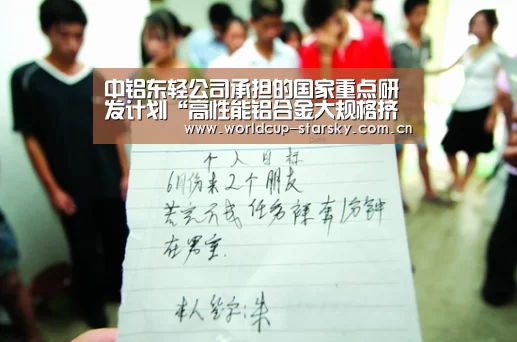 中铝东轻公司承担的国家重点研
发计划“高性能铝合金大规格挤
www.worldcup-starsky.com.cn
个人目标
6月份来2个朋友
若完不成任务裸奔1分钟
在男室.
本人签字:朱